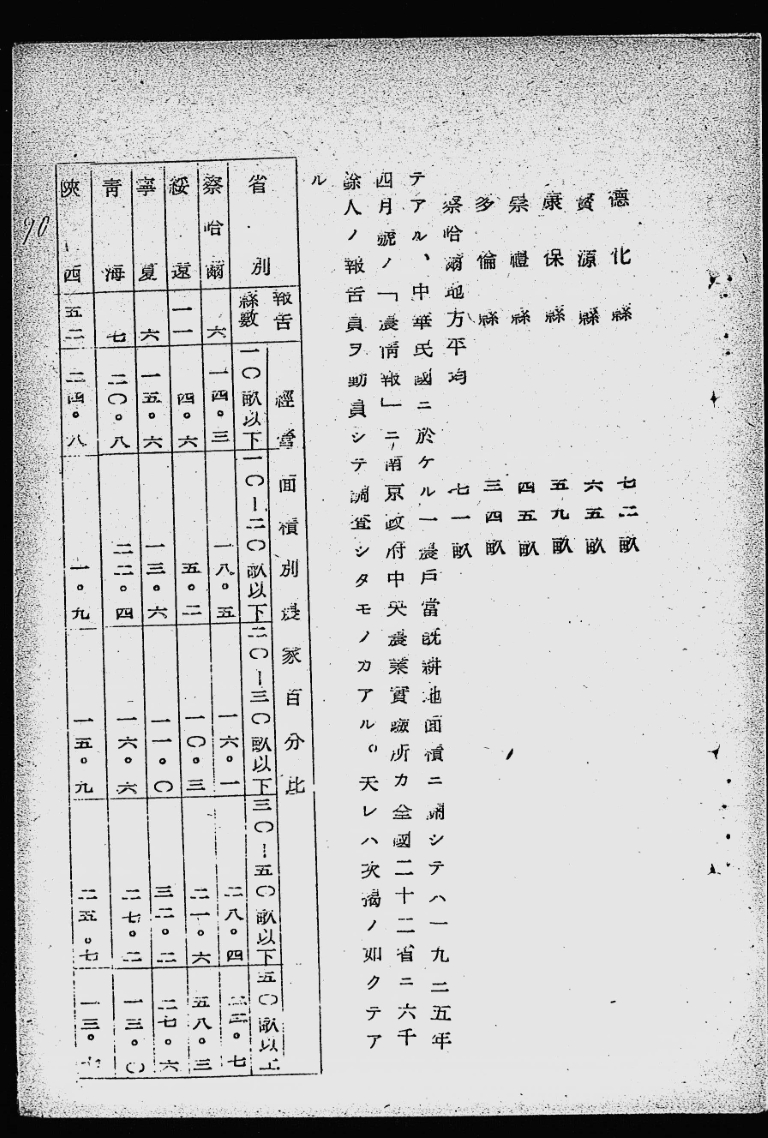 德化縣 七二畝
資源縣 六五畝
康保縣 五九畝
崇禮縣 四五畝
多倫縣 三四畝
察哈爾地方平均 七一畝
テアル、中華民國ニ於ケル一農戶當既耕地面積ニ關シテハ一九二五年
四月號ノ「農情報」ニ南京政府中央農業實驗所カ全國二十二省ニ六千
餘人ノ報告員ヲ動員シテ調查シタモノカアル。天レハ次揭ノ如クテア
ル
省別 報告縣數 經營面積別農家百分比
一〇畝以下 一〇—二〇畝以下 二〇—三〇畝以下 三〇—五〇畝以下 五〇畝以上
察哈爾 六 一四。三 一八。五 一六。一 二八。四 二二。七
綏遠 一一 四。六 五。二 一〇。三 二一。六 五八。三
寧夏 六 一五。六 一三。六 一一。〇 三二。二 二七。六
青海 七 二〇。八 二二。四 一六。六 二七。二 一三。〇
陝西 五二 二四。八 一。九 一五。九 二五。七 一三。
90